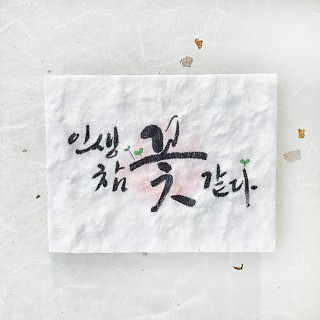 인생
참 꽃 같다.